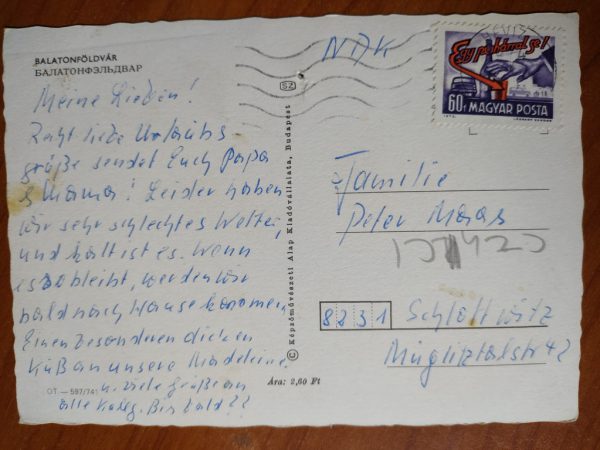 BALATONFÖLDVÁR
БАЛАТОНФЭЛЬДВАР
Meine Lieben!
Recht liebe Urlaubs
grüße sendet Euch Papa
& Mama! Leider haben
wir sehr schlechtes Wetter,
und kalt ist es. Wenn
es so bleibt, werden wir
bald nach Hause kommen.
Einen besonderen dicken
Kuß an unsere Madeleine.
u. viele Grüße an
alle Kolleg. Bis bald??
OT — 597/741
© Képzőművészeti Alap Kiadóvállalata, Budapest
SZ
Ára: 2,60 Ft
NDK
Egy pohárral se!
60f MAGYAR POSTA
Familie
Peter Maras
8231 Schlottwitz
Müglitztalstr 42